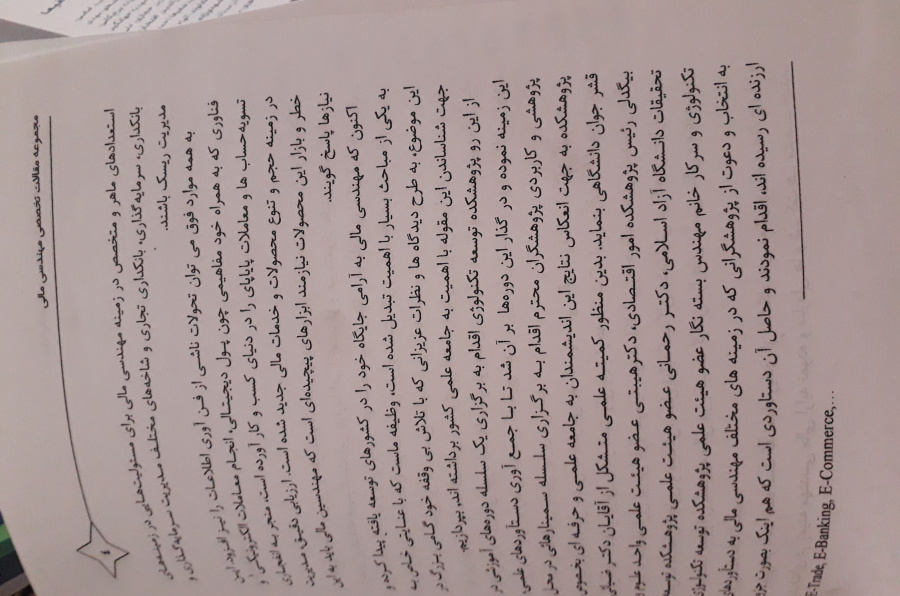 مجموعه مقالات تخصصی مهندسی مالی
۴
استعدادهای ماهر و متخصص در زمینه مهندسی مالی برای مسئولیت‌هایی در زمینه‌های
بانکداری، سرمایه‌گذاری، بانکداری تجاری و شاخه‌های مختلف مدیریت سرمایه‌گذاری و
مدیریت ریسک باشند.
به همه موارد فوق می توان تحولات ناشی از فـن آوری اطلاعـات را نیـز افـزود. ایـن
فناوری که به همراه خود مفاهیمی چون پـول دیجیتـالی، انجـام معـاملات الکترونیکـی و
تسویه‌حساب ها و معاملات پایاپای را در دنیای کسب و کار آورده است، منجر بـه انفجـاری
در زمینـه حجـم و تنوع محصولات و خدمات مالی جدید شده است. ارزیابی دقیـق مـدیریت
خطر و بازار این محصولات نیازمند ابزارهای پیچیده‌ای است که مهندسین مالی باید به این
نیازها پاسخ گویند.
اکنون که مهندسی مالی به آرامی جایگاه خود را در کشورهای توسعه یافتـه پیـدا کـرده و
به یکی از مباحث بسیار با اهمیت تبدیل شده است، وظیفه ماست که با عنـایتی خـاص بـه
این موضوع، به طرح دیدگاه ها و نظرات عزیزانی که با تلاش بی وقفه خود گـامی بـزرگ در
جهت شناساندن این مقوله با اهمیت به جامعه علمی کشور برداشته اند، بپردازیم.
از این رو پژوهشکده توسعه تکنولوژی اقدام به برگزاری یک سلسله دوره‌های آموزشی در
این زمینه نموده و در گذار این دوره‌ها بر آن شد تـا بـا جمـع آوری دستاوردهای علمی
پژوهشی و کاربردی پژوهشگران محترم اقدام بـه برگـزاری سلسـله سـمینارهائی در محل
پژوهشکده به جهت انعکاس نتایج این اندیشمندان به جامعه علمـی و حرفـه ای بخصوص
قشر جوان دانشگاهی بنماید. بدین منظور کمیتـه علمـی متشـکل از آقایـان دکـتر
بیگدلی رئیس پژوهشکده امور اقتصادی، دکترهیبتـی عضـو هیئـت علمـی واحـد علـوم و
تحقیقات دانشگاه آزاد اسـلامی، دکتـر رحمـانی عضـو هیئـت علمـی پژوهشـکده توسـعه
تکنولوژی و سرکار خانم مهندس بسته نگار عضو هیئت علمی پژوهشکده توسعه تکنولوژی
به انتخاب و دعوت از پژوهشگرانی که در زمینه های مختلف مهندسی مالی به دستاوردهای
ارزنده ای رسیده اند، اقدام نمودند و حاصل آن دستاوردی است که هم اینک بصورت
E-Trade, E-Banking, E-Commerce,…